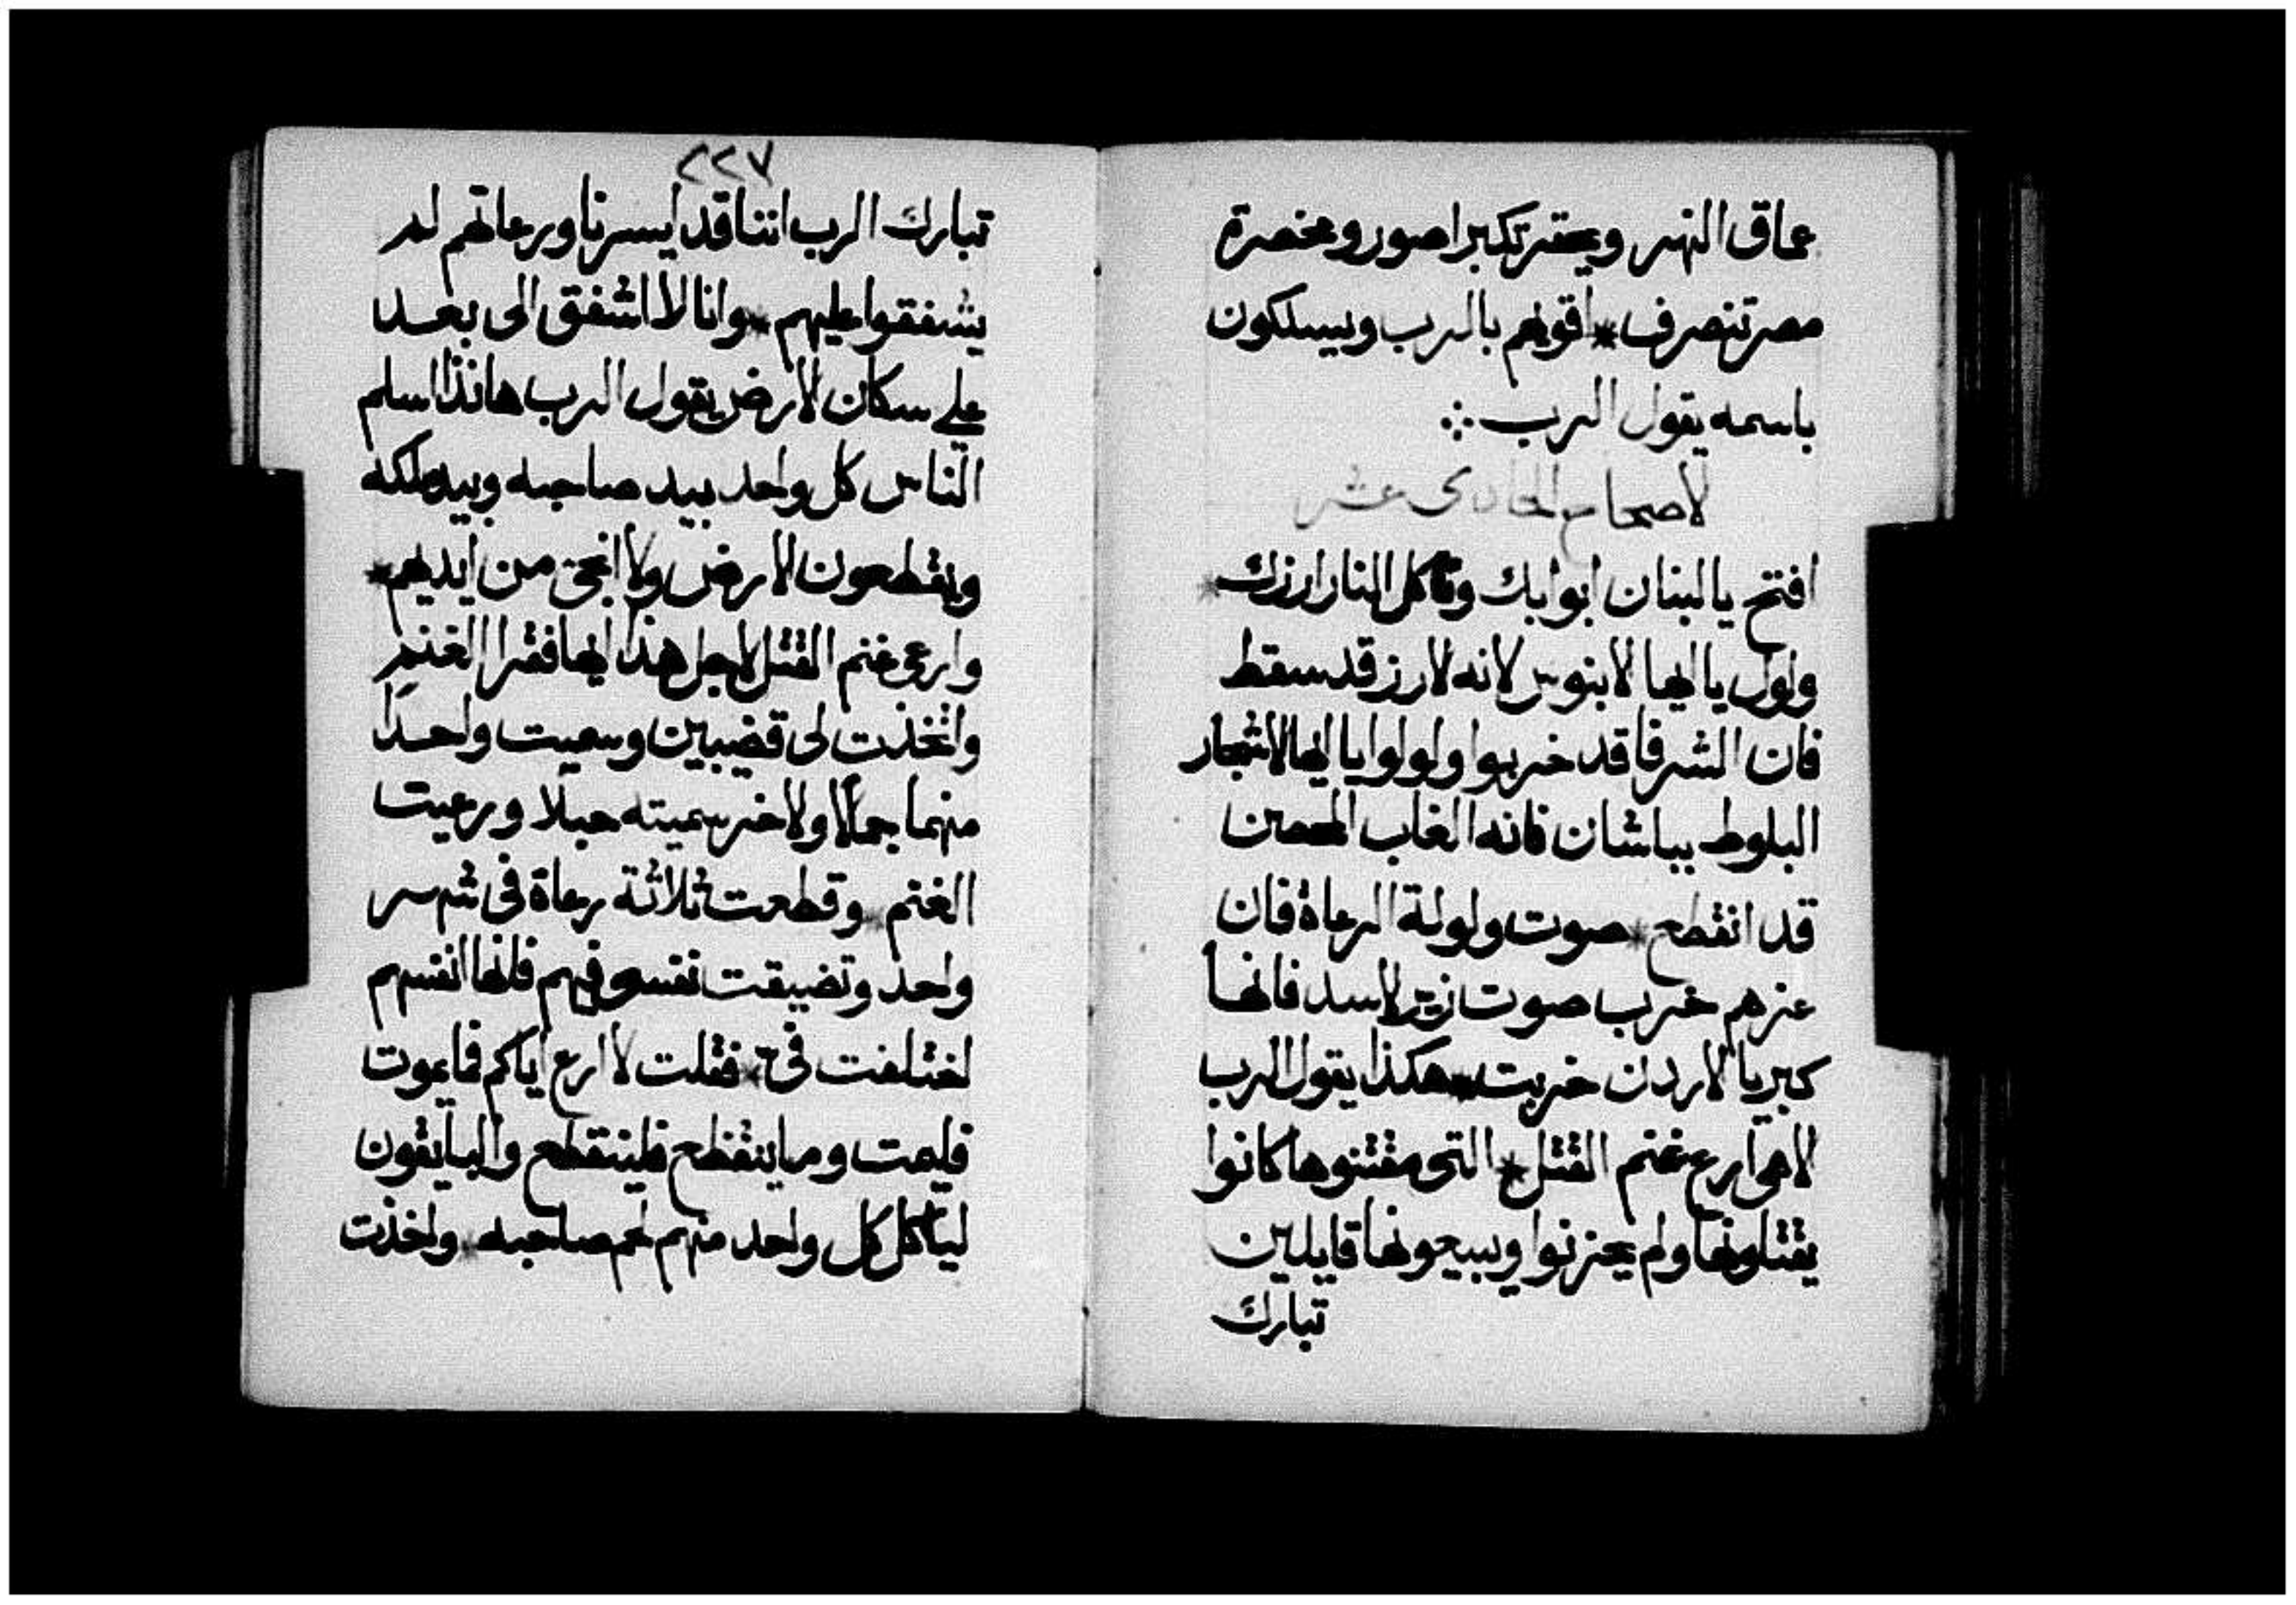 عماق النهر ويحتقر تكبر اصور ومخصرة
مصر تنصرف * اقويهم بالرب ويسلكون
باسمه يقول الرب ∴
الاصحاح الحادى عشر
افتح يا لبنان ابوابك وتاكل النار ارزك *
ولول يا ايها الابنوس لانه الارز قد سقط
فان الشرفا قد خربوا ولولوا يا ايها الاشجار
البلوط بباشان فانه الغاب المحصن
قد انقطع * صوت ولولة الرعاة فان
عزهم خرب صوت زير الاسد فانها
كبريا الاردن خربت * هكذا يقول الرب
الاهى ارع غنم القتل * التى مقتنوها كانوا
يقتلونها ولم يحزنوا ويبيعونها قايلين
تبارك
٢٢٧
تبارك الرب اننا قد ايسرنا ورعاتهم لم
يشفقوا عليهم * وانا لا اشفق الى بعد
على سكان الارض يقول الرب هانذا اسلم
الناس كل واحد بيد صاحبه وبيد ملكه
ويقطعون الارض ولا انجى من ايديهم *
وارعى غنم القتل لاجل هذا ايها فقرا الغنم
واتخذت لى قضيبين وسميت واحدا
منهما جمالا والاخر سميته حبلا ورعيت
الغنم * وقطعت ثلاثة رعاة فى شهر
واحد وتضيقت نفسى فيهم فانها انفسهم
اختلفت فىّ * فقلت لا ارع اياكم فما يموت
فليمت وما ينقطع فلينقطع والباقون
لياكل كل واحد منهم لحم صاحبه * واخذت